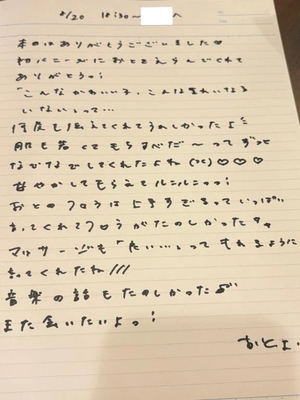 8/20 18:30〜 へ
本日はありがとうございました♡
初バニーがにおとをえらんでくれて
ありがとうっ!
「こんなかわいい子、こんなきれいな子
いないっ」って…
何度も伝えてくれてうれしかったよ
肌も若くてもちすべだ〜ってずっと
なでなでしてくれたよね ♡♡♡
甘やかしてもらえてルンルンっっ!
おとのフロうは上手すぎるっていっぱい
いってくれてフロうがたのしかった
マッサージも「 」ってもれるように
してくれたね///
音楽の話もたのしかった
また会いたいよっ!
おとよ